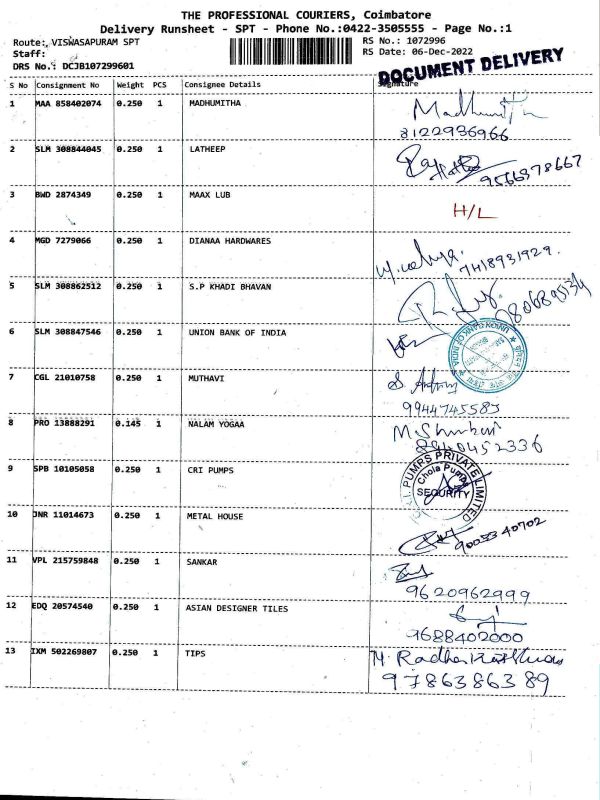 THE PROFESSIONAL COURIERS, Coimbatore
Delivery Runsheet - SPT - Phone No.:0422-3505555 - Page No.:1
Route: VISWASAPURAM SPT
RS No.: 1072996
Staff:
RS Date: 06-Dec-2022
DRS No.: DCJB107299601
DOCUMENT DELIVERY
S No Consignment No Weight PCS Consignee Details Signature
1 MAA 858402074 0.250 1 MADHUMITHA
8122936966
2 SLM 308844045 0.250 1 LATHEEP
9566378667
3 BWD 2874349 0.250 1 MAAX LUB H/L
4 MGD 7279066 0.250 1 DIANAA HARDWARES
7418931929.
5 SLM 308862512 0.250 1 S.P KHADI BHAVAN
6 SLM 308847546 0.250 1 UNION BANK OF INDIA
UNION BANK OF INDIA
7 CGL 21010758 0.250 1 MUTHAVI
S. Antony
9944745583
8 PRO 13888291 0.145 1 NALAM YOGAA
8940452336
9 SPB 10105058 0.250 1 CRI PUMPS
PUMPS PRIVATE LIMITED
Chola Pumps
SECURITY
10 JNR 11014673 0.250 1 METAL HOUSE
11 VPL 215759848 0.250 1 SANKAR
9620962999
12 EDQ 20574540 0.250 1 ASIAN DESIGNER TILES
7688402000
13 IXM 502269807 0.250 1 TIPS
9786386389